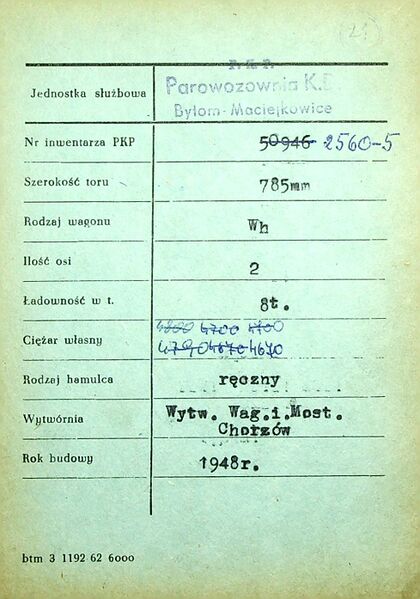 (21)
P.K.P.
Jednostka służbowa Parowozownia K.D
Bytom-Maciejkowice
Nr inwentarza PKP 50946 2560-5
Szerokość toru 785mm
Rodzaj wagonu Wh
Ilość osi 2
Ładowność w t. 8t.
4800 4700 4700
Ciężar własny 4790 4670 4670
Rodzaj hamulca ręczny
Wytwórnia Wytw. Wag.i.Most.
Chorzów
Rok budowy 1948r.
btm 3 1192 62 6000